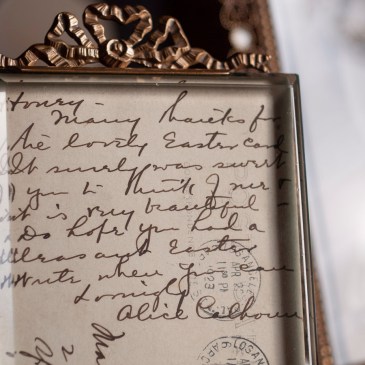 Honey -
Many thanks for
the lovely Easter card
It surely was sweet
you to think of me &
it is very beautiful -
Do hope you had a
pleasant Easter
Write when you can
Lovingly
Alice Calhoun
LOS ANGELES
APR 2
1 PM
1923
LOS ANG
APR